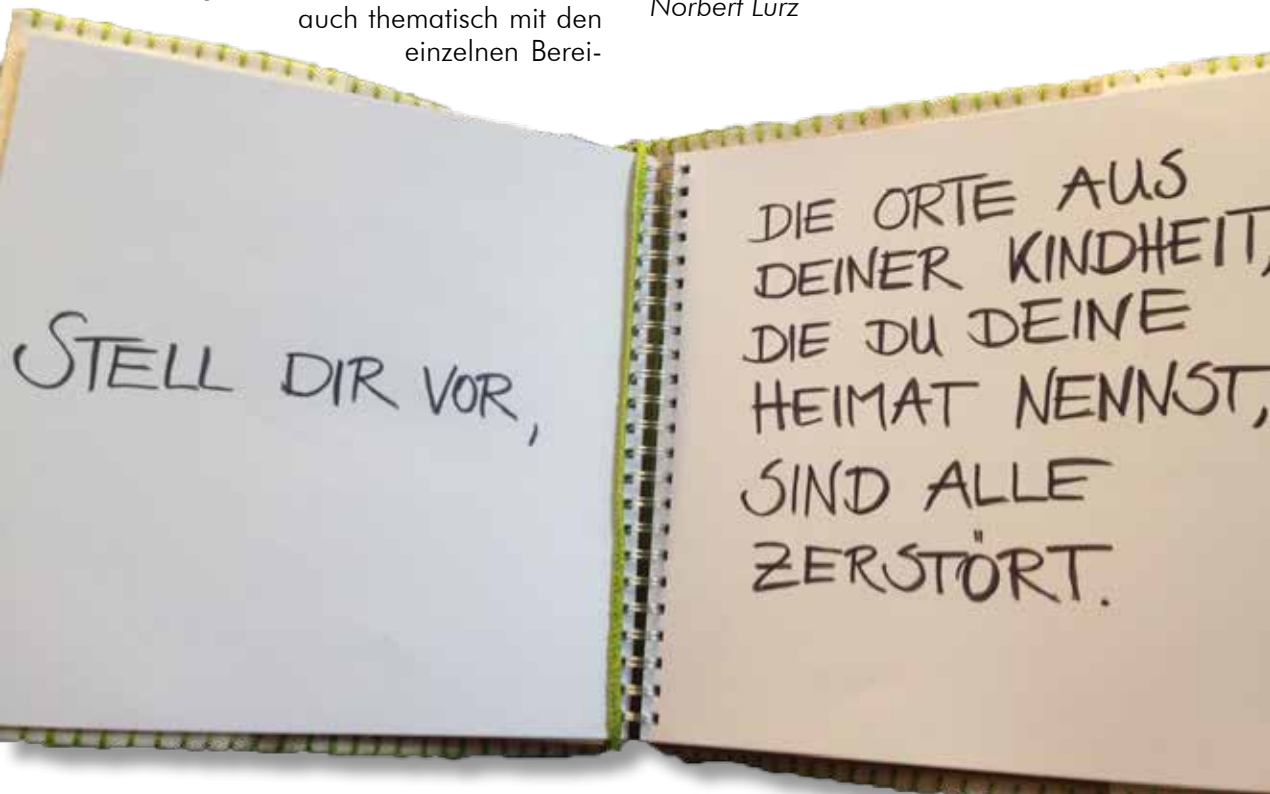 auch thematisch mit den
einzelnen Berei-
Norbert Lurz
STELL DIR VOR,
DIE ORTE AUS
DEINER KINDHEIT,
DIE DU DEINE
HEIMAT NENNST,
SIND ALLE
ZERSTÖRT.